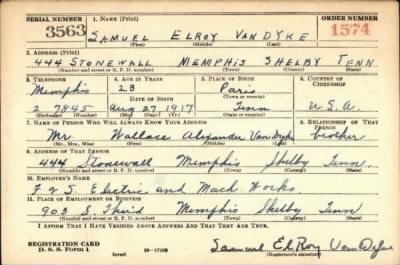 SERIAL NUMBER 1. NAME (Print) ORDER NUMBER
3563 SAMUEL ELROY VAN DYKE 1574
(First) (Middle) (Last)
2. ADDRESS (Print)
444 STONEWALL MEMPHIS SHELBY TENN
(Number and street or R. F. D. number) (Town) (County) (State)
3. TELEPHONE 4. AGE IN YEARS 5. PLACE OF BIRTH 6. COUNTRY OF CITIZENSHIP
Memphis 23 Paris
DATE OF BIRTH (Town or county)
2 7845 Aug 27 1917 Tenn U.S.A.
(Exchange) (Number) (Mo.) (Day) (Yr.) (State or country)
7. NAME OF PERSON WHO WILL ALWAYS KNOW YOUR ADDRESS 8. RELATIONSHIP OF THAT PERSON
Mr Wallace Alexander Van Dyke brother
(Mr., Mrs., Miss) (First) (Middle) (Last)
9. ADDRESS OF THAT PERSON
444 Stonewall Memphis Shelby Tenn.
(Number and street or R. F. D. number) (Town) (County) (State)
10. EMPLOYER'S NAME
F & S. Electric and Mach Works
11. PLACE OF EMPLOYMENT OR BUSINESS
903 S. Third Memphis Shelby Tenn
(Number and street or R. F. D. number) (Town) (County) (State)
I AFFIRM THAT I HAVE VERIFIED ABOVE ANSWERS AND THAT THEY ARE TRUE.
REGISTRATION CARD
D. S. S. Form 1 (over) 16—17105 Samuel ElRoy Van Dyke
(Registrant's signature)